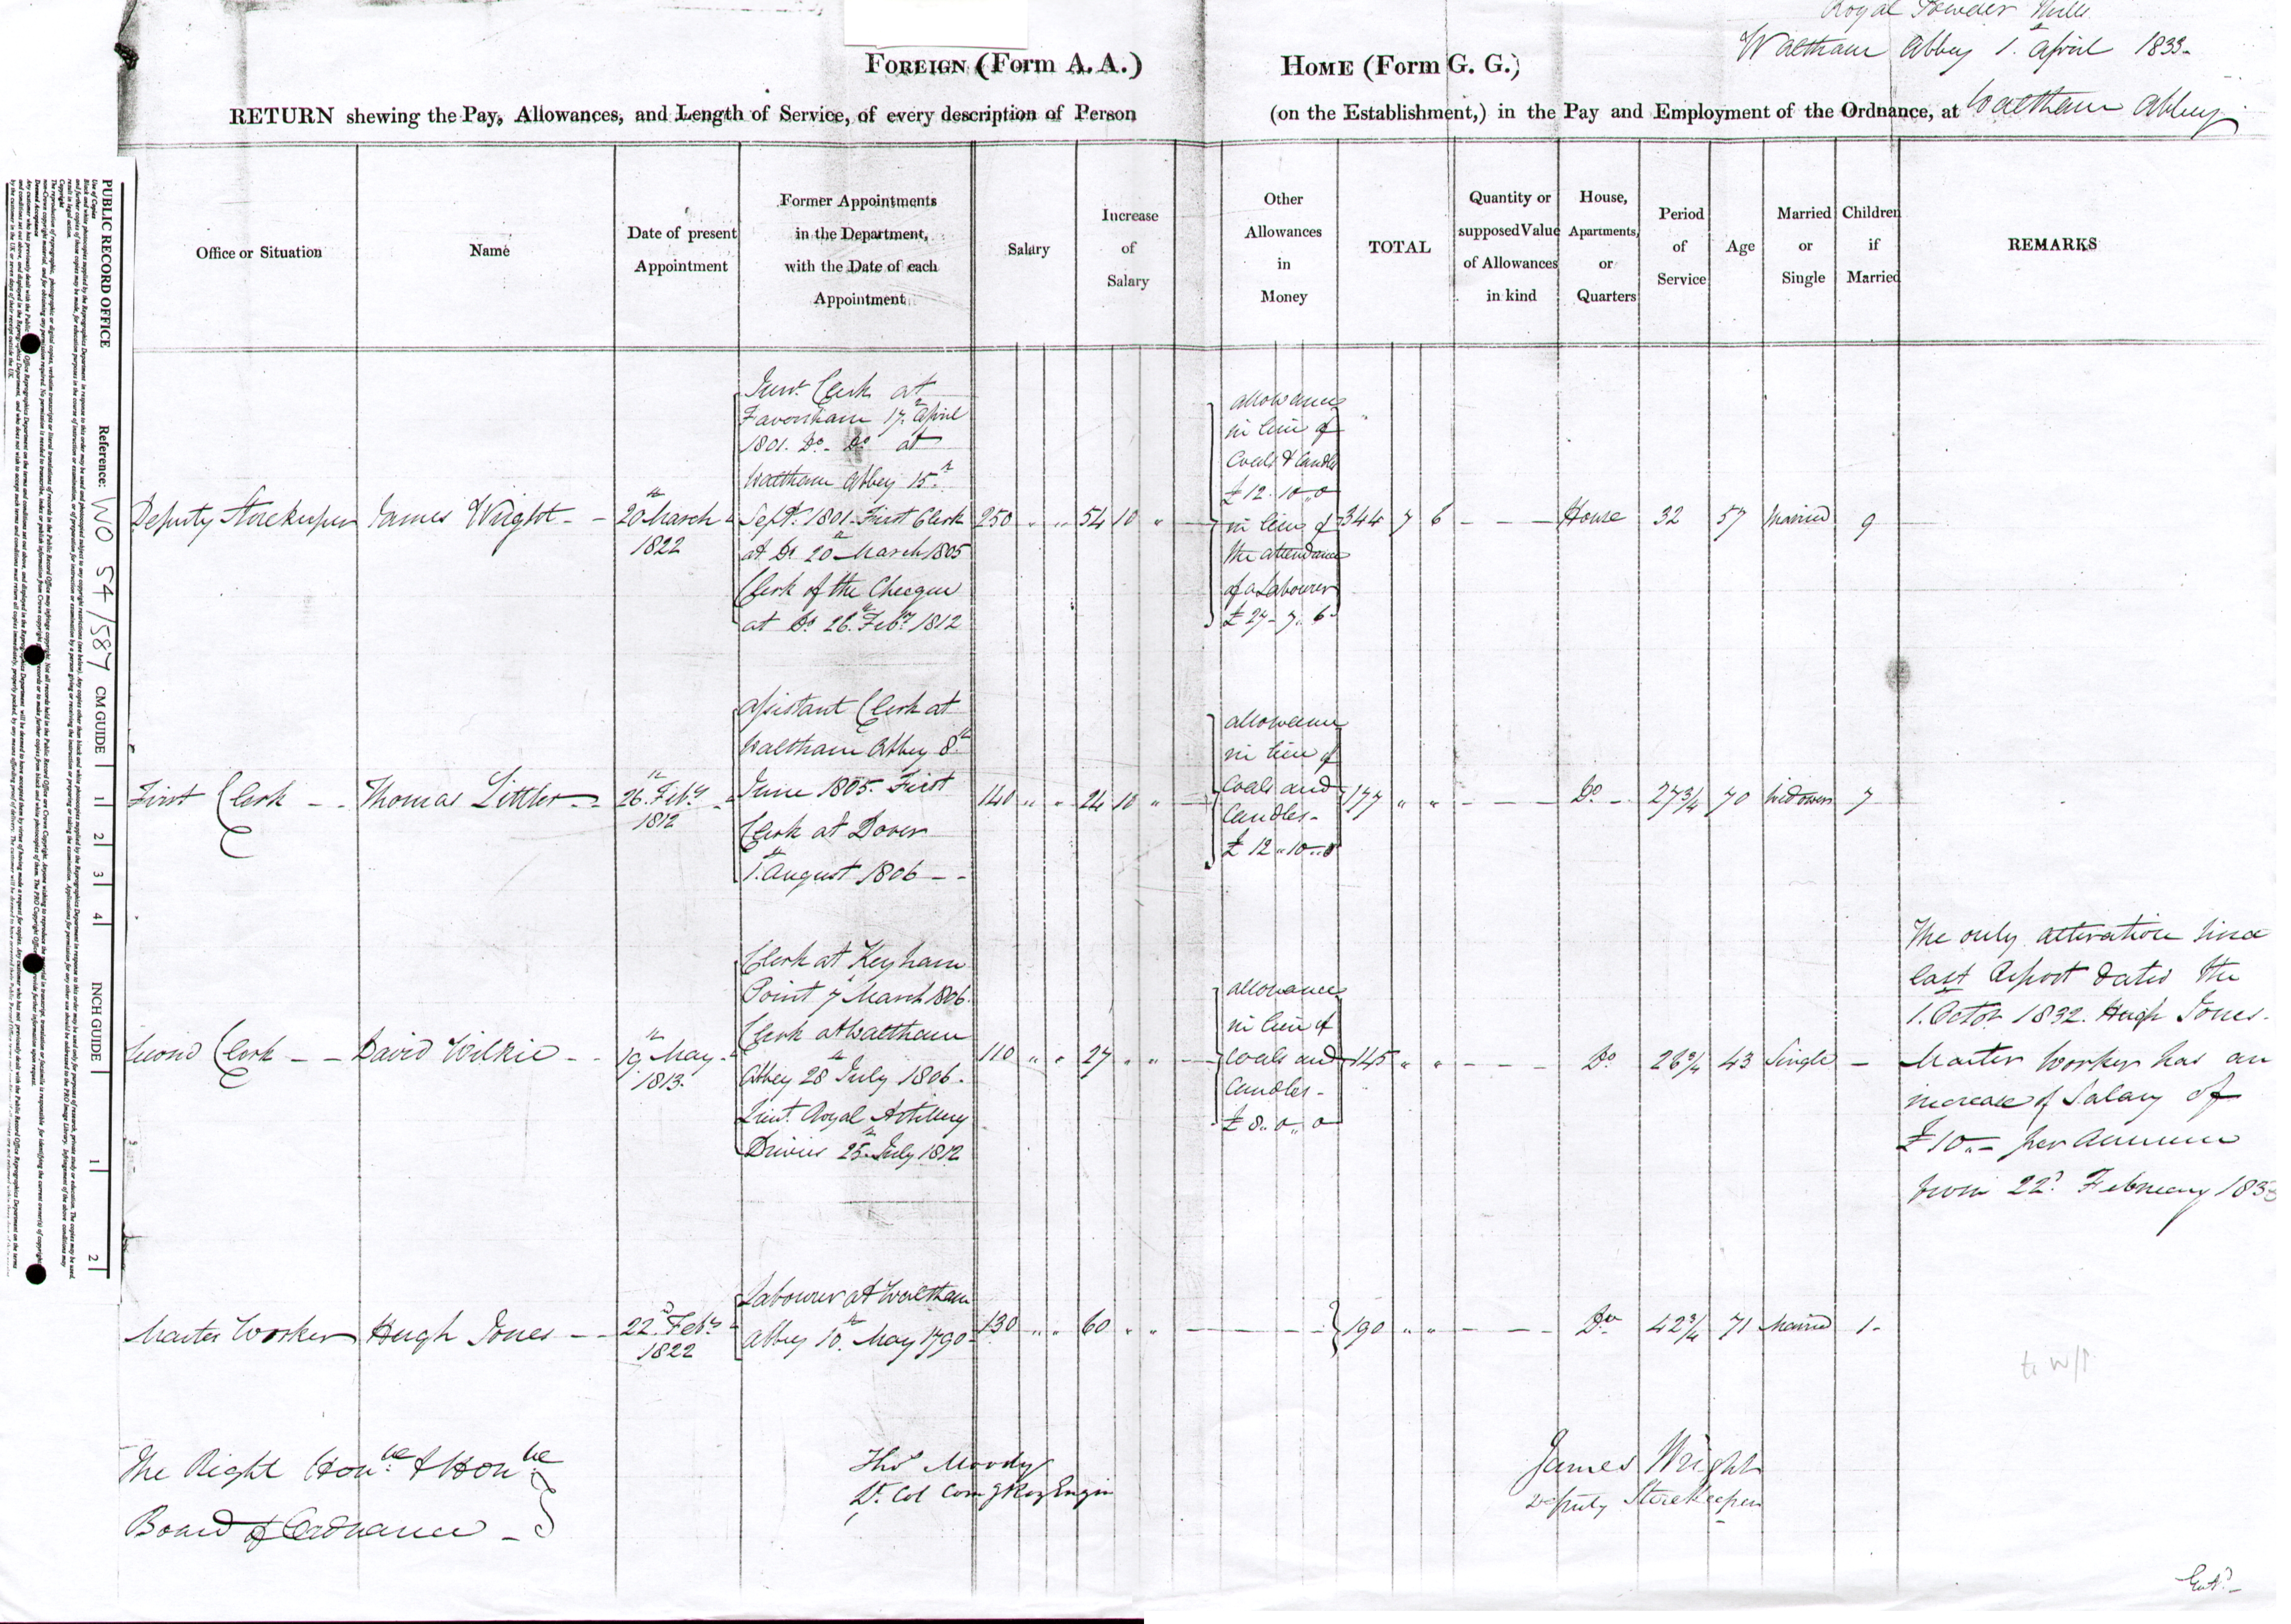 Royal Powder Mills
Waltham Abbey 1. April 1833.
FOREIGN (Form A. A.)
HOME (Form G. G.)
RETURN shewing the Pay, Allowances, and Length of Service, of every description of Person
(on the Establishment,) in the Pay and Employment of the Ordnance, at Waltham Abbey
Office or Situation
Name
Date of present
Appointment
Former Appointments
in the Department,
with the Date of each
Appointment
Salary
Increase
of
Salary
Other
Allowances
in
Money
TOTAL
Quantity or
supposed Value
of Allowances
in kind
House,
Apartments,
or
Quarters
Period
of
Service
Age
Married
or
Single
Children
if
Married
REMARKS
Deputy Storekeeper
James Wright
20th March
1822
Junr. Clerk at
Faversham 17th April
1801. Do. Do. at
Waltham Abbey 15th
Sept. 1801. First Clerk
at Do. 20th March 1805
Clerk of the Cheque
at Do. 26th Feby. 1812
250 " "
54 10 "
allowance
in lieu of
Coals & Candles
£12.10.0
in lieu of
the attendance
of a Labourer
£27-7.6
344 7 6
House
32
57
Married
9
First Clerk
Thomas Littler
26th Feby.
1812
Assistant Clerk at
Waltham Abbey 8th
June 1805. First
Clerk at Dover
1st August 1806
140 " "
24 10 "
allowance
in lieu of
Coals and
Candles
£12.10.0
177 " "
Do
27 3/4
70
Widower
7
Second Clerk
David Wilkie
19th May
1813.
Clerk at Keyham
Point 7 March 1806.
Clerk at Waltham
Abbey 28th July 1806.
Lieut. Royal Artillery
Drivers 25th July 1812
110 " "
27 " "
allowance
in lieu of
Coals and
Candles
£8.0.0
145 " "
Do
26 3/4
43
Single
Master Worker
Hugh Jones
22d Feby.
1822
Labourer at Waltham
Abbey 10th May 1790
130 " "
60 " "
190 " "
Do
42 3/4
71
Married
1
The only alteration since
last Report dated the
1st Octor. 1832. Hugh Jones.
Master Worker has an
increase of Salary of
£10.- per Annum
from 22d February 1833
The Right Honble. & Honble.
Board of Ordnance
Thos Moody
Lt. Col Comg Roy Engin
James Wright
Deputy Storekeeper
PUBLIC RECORD OFFICE
Reference: WO 54/587
CM GUIDE
1
2
3
4
INCH GUIDE
1
2